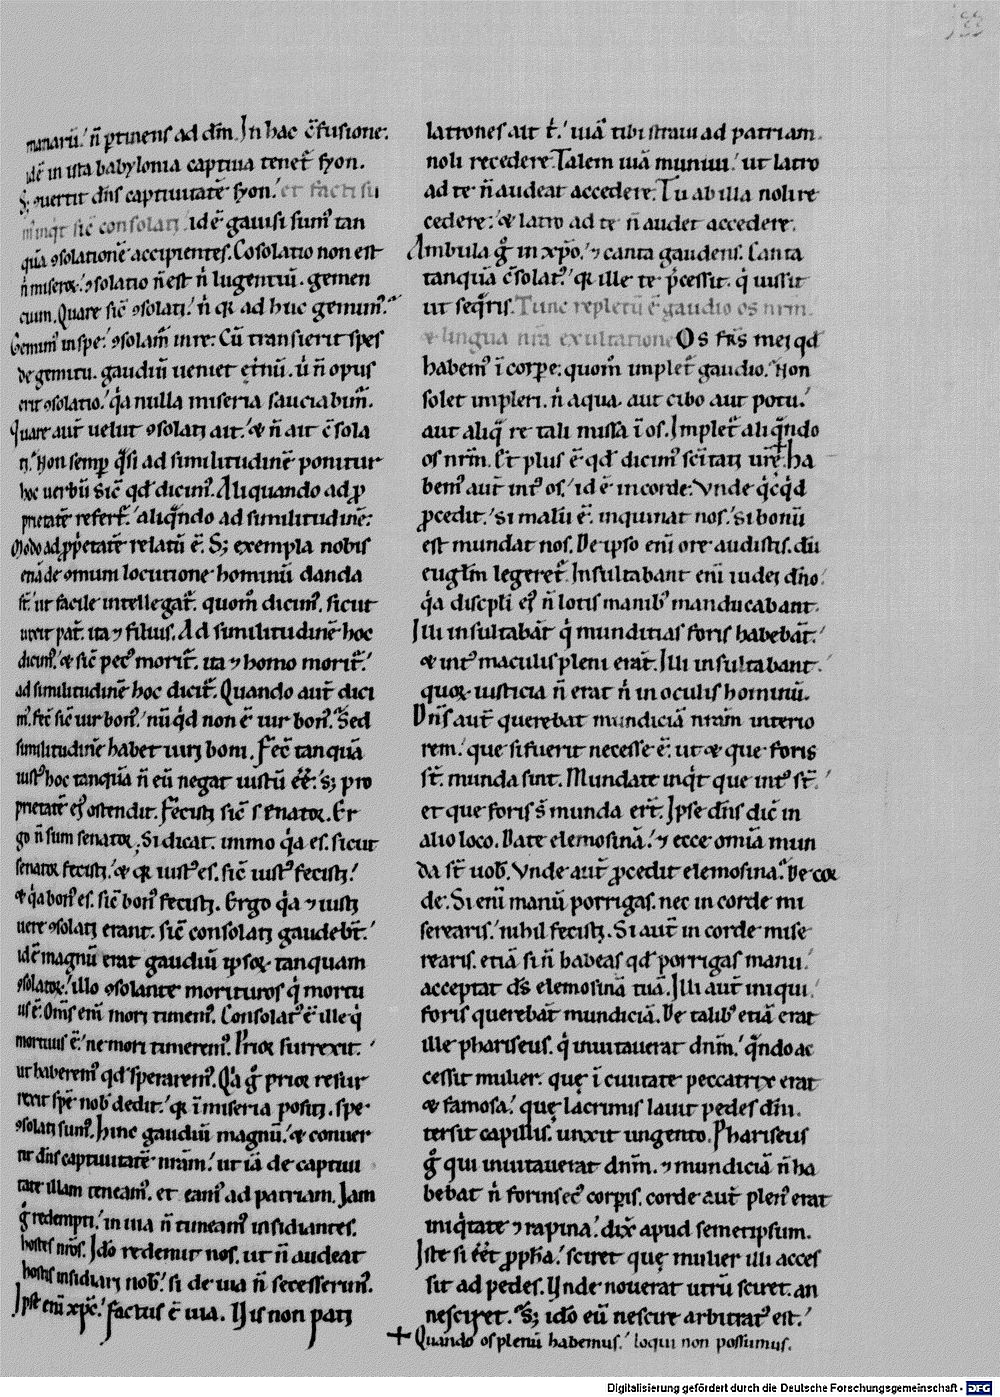 133
manarū. ñ ptinens ad dm̄. In hac c̄fusione.
idē in ista babylonia captiua tenet̄ syon.
S; ꝯuertit dn̄s captiuitatē syon. et facti su
m' inqt sic̄ consolati. idē gauisi sum' tan
quā ꝯsolationē accipientes. Cōsolatio non est
ñ miseroꝝ. ꝯsolatio ñ est ñ lugentiū. gemen
tium. Quare sic̄ ꝯsolati. ñ qꝛ ad huc gemim'.
Gemim' in spe. ꝯsolam̄ in re. Cū transierit spes
de gemitu. gaudiū ueniet et̄nū. ū ñ opus
erit ꝯsolatio. q̇a nulla miseria sauciabim̄.
Quare aut̄ uelut ꝯsolati ait. & ñ ait c̄sola
ti. Non semp q̇si ad similitudinē ponitur
hoc uerbū sic̄ qd̄ dicim'. Aliquando ad ꝓ
prietatē refert̄. aliqn̄do ad similitudinē.
Modo ad ꝓpetatē relatū ē. S; exempla nobis
etiā de ꝯmuni locutione hominū danda
st̄. ut facile intellegat̄. quom̄ dicim'. sicut
uixit pat̄. ita ⁊ filius. Ad similitudinē hoc
dicim'. & sic̄ pec' morit̄. ita ⁊ homo morit̄.
ad similitudinē hoc dicit̄. Quando aut̄ dici
m'. fec̄ sic̄ uir bon'. nū qd̄ non ē uir bon'. Sed
similitudinē habet uiri boni. Fec̄ tanquā
iust' hoc tanquā ñ eū negat iustū ēē. s; pro
prietatē ei' ostendit. Fecisti sic̄ senatoꝛ. Er
go ñ sum senatoꝛ. Si dicat. immo q̇a es. sicut
senatoꝛ fecisti. & qꝛ iust' es. sic̄ iust' fecisti.
& q̇a bon' es. sic̄ bon' fecisti. Ergo q̇a ⁊ iusti
uere ꝯsolati erant. sic̄ consolati gaudebt̄.
idē magnū erat gaudiū ipsoꝝ tanquam
ꝯsolatoꝝ. illo ꝯsolante morituros q̇ mortu
us ē. Om̄s enī mori timem'. Consolat' ē ille q̇
mortuus ē. ne mori timerem'. Prioꝛ surrexit.
ut haberem' qd̄ sperarem'. Q̇a g̊ prioꝛ resur
rexit spē nob' dedit. qꝛ ī miseria positi. spe
ꝯsolati sum'. hinc gaudiū magnū. & conuer
tit dn̄s captiuitatē nr̄am. ut iā de captiui
tate illam teneam'. et eam' ad patriam. Jam
g̊ redempti. in uia ñ timeam' insidiantes.
hostes nr̄os. Ido redemit nos. ut ñ audeat
hostis insidiari nob'. si de uia ñ secesserim'.
Ipse enī xp̄c. factus ē uia. Uis non pati
latrones ait t̄. uiā tibi straui ad patriam.
noli recedere. Talem uiā muniui. ut latro
ad te ñ audeat accedere. Tu ab illa noli re
cedere. & latro ad te ñ audet accedere.
Ambula g̊ in xp̄o. ⁊ canta gaudens. Canta
tanquā c̄solat'. qꝛ ille te p̄cessit. q̇ iussit
ut seq̄ris. Tunc repletū ē gaudio os nrm̄.
& lingua nr̄a exultatione. Os fr̄s mei qd̄
habem' ī corpe. quom̄ implet̄ gaudio. Non
solet impleri. ñ aqua. aut cibo aut potu.
aut aliq̇ re tali missa ī os. Implet̄ aliqn̄do
os nrm̄. Et plus ē qd̄ dicim' sc̄itati ur̄e. ha
bem' aut̄ int' os. id ē in corde. Vnde q̇cq̇d
ꝓcedit. si malū ē. inquinat nos. si bonū
est mundat nos. De ipso enī ore audistis. dū
euglm̄ legeret̄. Insultabant enī iudei dn̄o.
q̇a discpli ei' ñ lotis manib' manducabant.
Illi insultabāt q̇ munditias foris habebāt.
& int' maculis pleni erāt. Illi insultabant.
quoꝝ iusticia ñ erat ñ in oculis hominū.
Dn̄s aut̄ querebat mundiciā nr̄am interio
rem. que si fuerit necesse ē. ut & que foris
st̄. munda sint. Mundate inq̇t que int' st̄.
et que foris s̄ munda ert̄. Ipse dn̄s dic̄ in
alio loco. Date elemosinā. ⁊ ecce omīa mun
da st̄ uob'. Vnde aut̄ ꝓcedit elemosina. De coꝛ
de. Si enī manū porrigas. nec in corde mi
serearis. nihil fecisti. Si aut̄ in corde mise
rearis. etiā si ñ habeas qd̄ porrigas manu.
acceptat ds̄ elemosinā tuā. Illi aut̄ iniqui.
foris querebāt mundiciā. De talib' etiā erat
ille phariseus. q̇ inuitauerat dnm̄. qn̄do ac
cessit mulier. quę ī ciuitate peccatrix erat
& famosa. quę lacrimis lauit pedes dn̄i.
tersit capillis. unxit ungento. Phariseus
g̊ qui inuitauerat dnm̄. ⁊ mundiciā ñ ha
bebat ñ forinsec' corpis. corde aut̄ plen' erat
iniq̇tate ⁊ rapina. dix̄ apud semetipsum.
Iste si ēēt ꝓpha. sciret quę mulier illi acces
sit ad pedes. Unde nouerat utrū sciret. an
nesciret. S; ido eū nescire arbitrat' est.
+ Quando os plenū habemus. loqui non possumus.
Digitalisierung gefördert durch die Deutsche Forschungsgemeinschaft - DFG